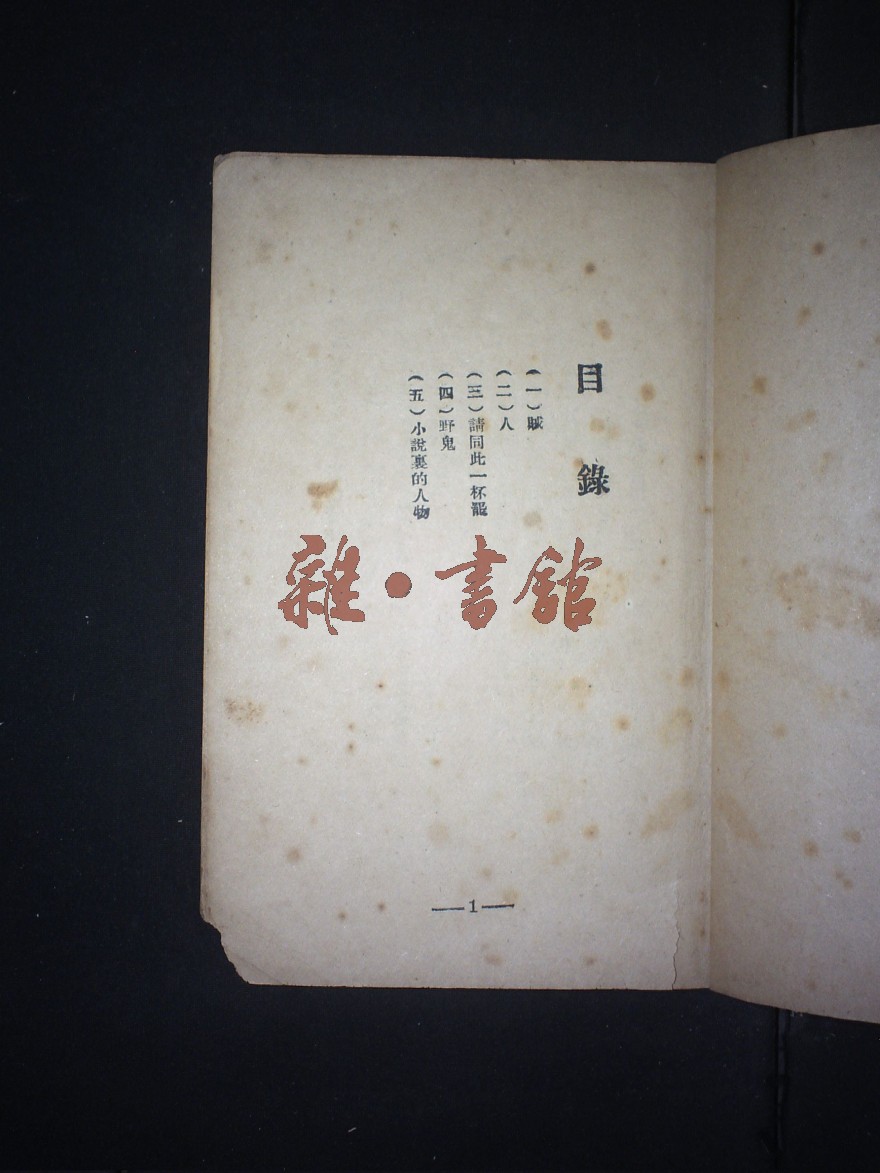 目錄
（一）賊
（二）人
（三）請同此一杯罷
（四）野鬼
（五）小說裏的人物
雜•書館
—1—